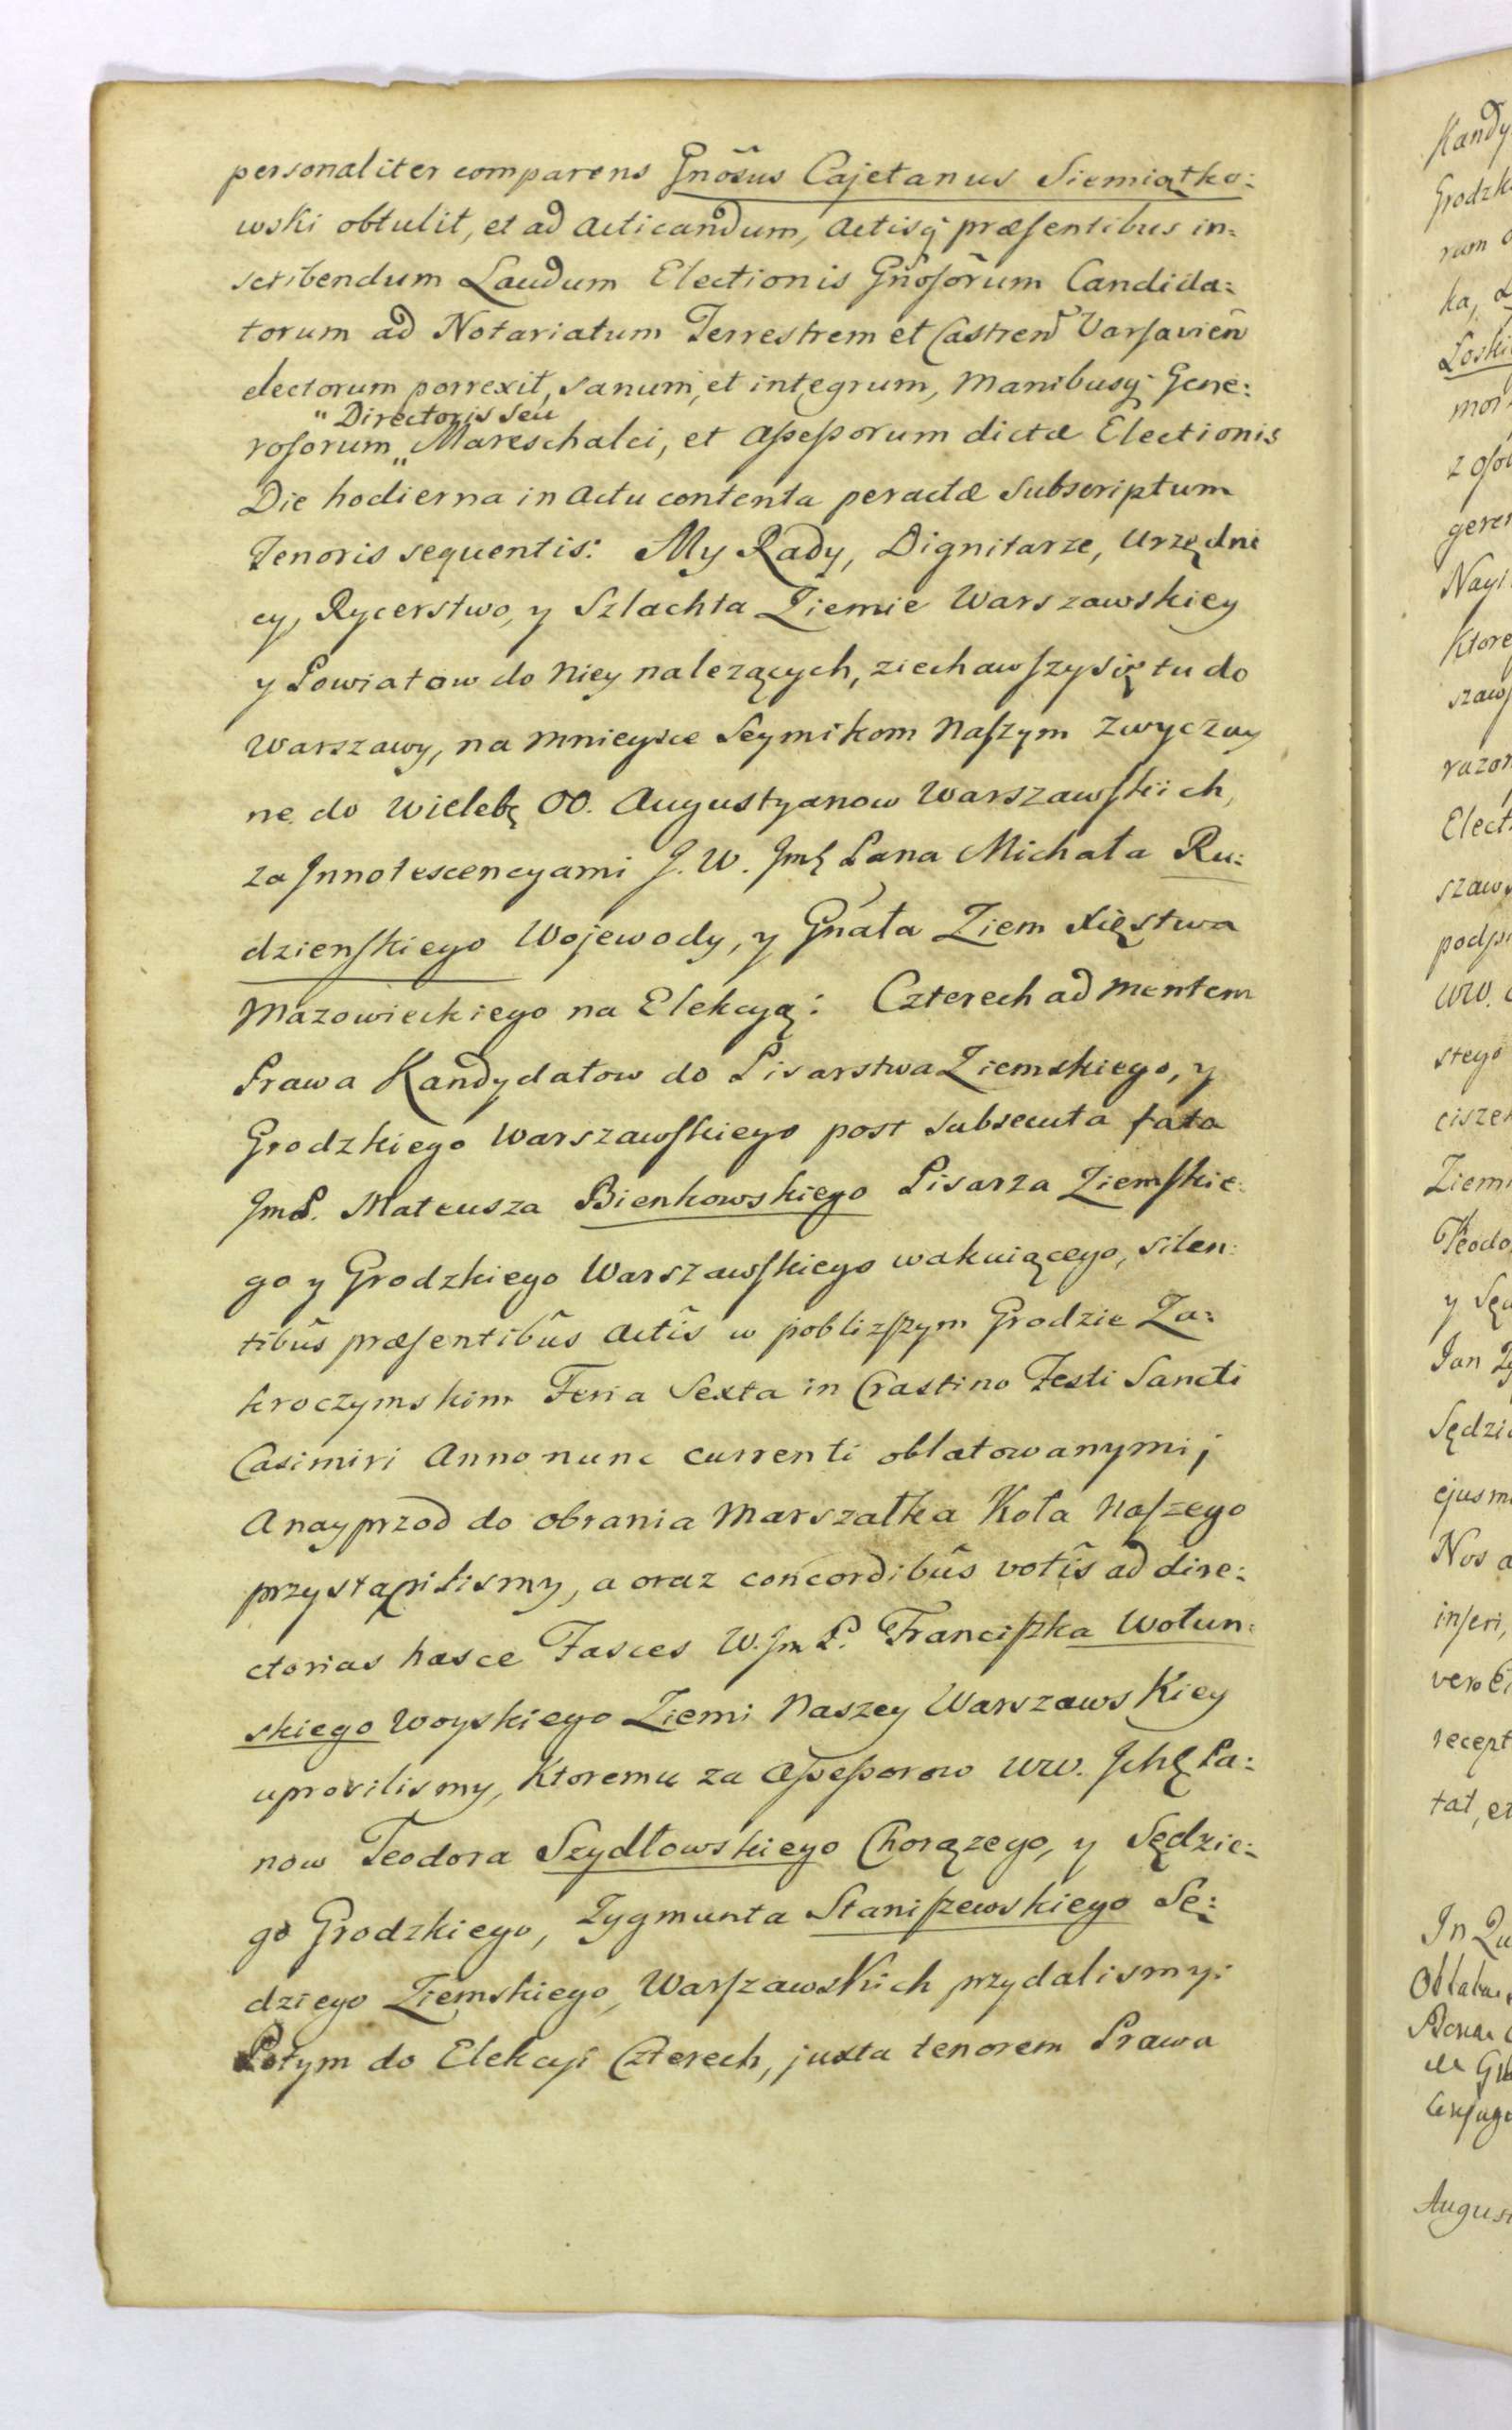 personaliter comparens Gnõsus Cajetanus Siemiątko:
wski obtulit, et ad Acticandum, Actisq̃ præsentibus in=
scribendum Laudum Electionis Gñosõrum Candida:
torum ad Notariatum Terrestrem et Castren̄ Varsavien̄
electorum porrexit, sanum, et integrum, Manibusq̃ Gene:
" Directoris seu
rosorum „ Mareschalci, et Assessorum dictæ Electionis
Die hodierna in Actu contenta peractæ subscriptum
Tenoris sequentis: My Rady, Dignitarze, Urzędni
cy, Rycerstwo, y Szlachta Ziemie Warszawskiey
y Powiatow do Niey nalezących, ziechawszy się tu do
Warszawy, na mnieysce Seymikom Naszym zwyczay
ne do Wieleb̨ OO. Augustyanow Warszawskich,
za Innotescencyami J. W. Jmć Pana Michała Ru:
dzienskiego Wojewody, y Gnała Ziem Xięstwa
Mazowieckiego na Elekcyą: Czterech ad mentem
Prawa Kandydatow do Pisarstwa Ziemskiego, y
Grodzkiego Warszawskiego post subsecuta fata
JmP. Mateusza Bienkowskiego Pisarza Ziemskie:
go y Grodzkiego Warszawskiego wakuiącego, silen:
tibũs præsentibũs Actĩs w poblizszym Grodzie Za:
kroczymskim Feria Sexta in Crastino Festi Sancti
Casimiri Anno nunc currenti oblatowanymi;
A nayprzod do obrania Marszałka Koła Naszego
przystąpilismy, a oraz concordibũs votĩs ad dire:
ctorias hasce Fasces W.Jm P. Franciszka Wołun:
skiego Woyskiego Ziemi Naszey Warszawskiey
uprosilismy, Ktoremu za Assessorow WW. Ichć Pa:
now Teodora Szydłowskiego Chorązego, y Sędzie:
go Grodzkiego, Zygmunta Staniszewskiego Sę:
dziego Ziemskiego, Warszawskich przydalismy:
Potym do Elekcyi Czterech, juxta tenorem Prawa